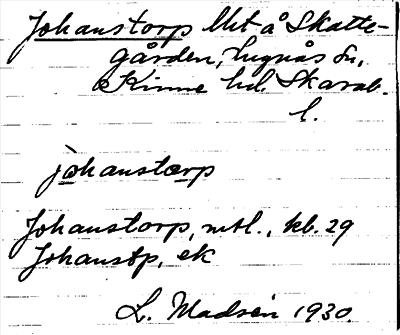 Johanstorp lht å Skatte-
gården, Lugnås sn,
Kinne hd. Skarab.
l.
johanstorp
Johanstorp, mtl., kb. 29
Johanstp, ek
L. Madsén 1930.